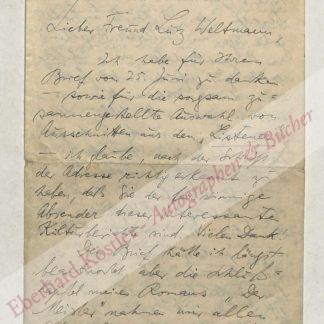 Lieber Freund Lutz Weltmann
Ich habe für Ihren
Brief vom 25. Juni zu danken
– sowie für die sorgsam zu-
sammengestellte Auswahl von
Ausschnitten aus dem "Listener"
– ich glaube, nach der Schrift
der Adresse richtig erkannt zu
haben, daß Sie der
Absender dieser interessanten
sind. Vielen Dank!
Brief hätte ich längst
beantwortet aber die Schluß-
meines Romans "Der
Meister" nahmen mir allen
Eberhard Köstler Autographen & Bücher